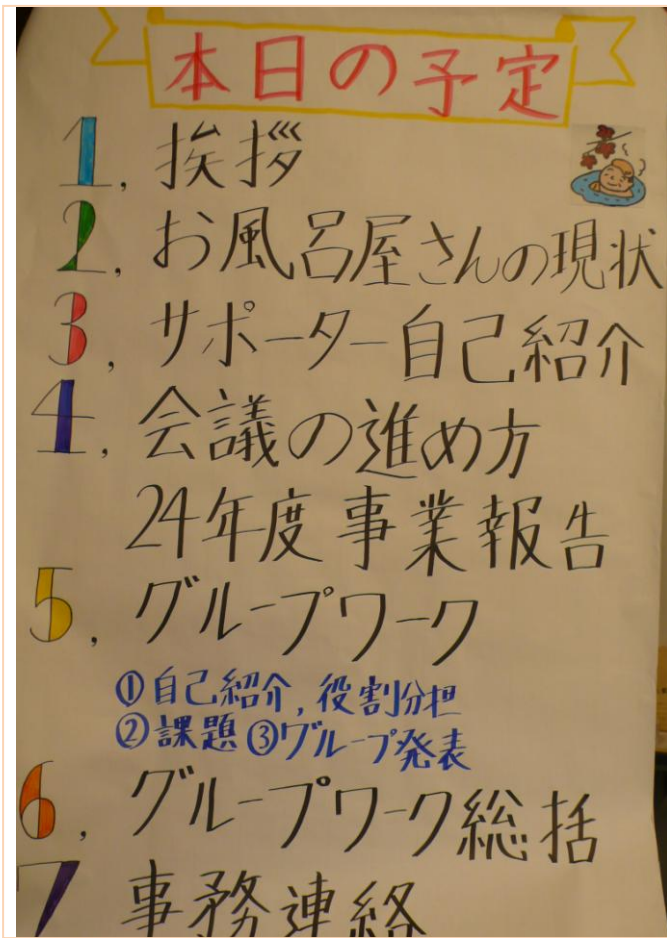 本日の予定
1. 挨拶
2. お風呂屋さんの現状
3. サポーター自己紹介
4. 会議の進め方
24年度事業報告
5. グループワーク
①自己紹介, 役割分担
②課題 ③グループ発表
6. グループワーク総括
7 事務連絡